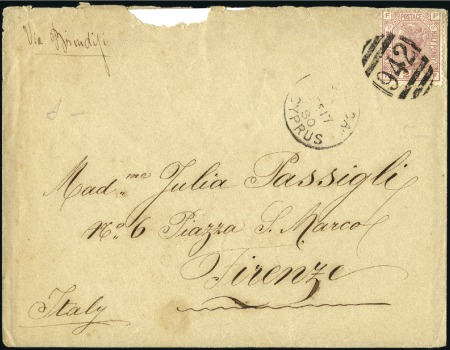 Via Brindisi
POSTAGE
942
17
80
CYPRUS
Mad.me Julia Passigli
No. 6 Piazza S. Marco
Firenze
Italy